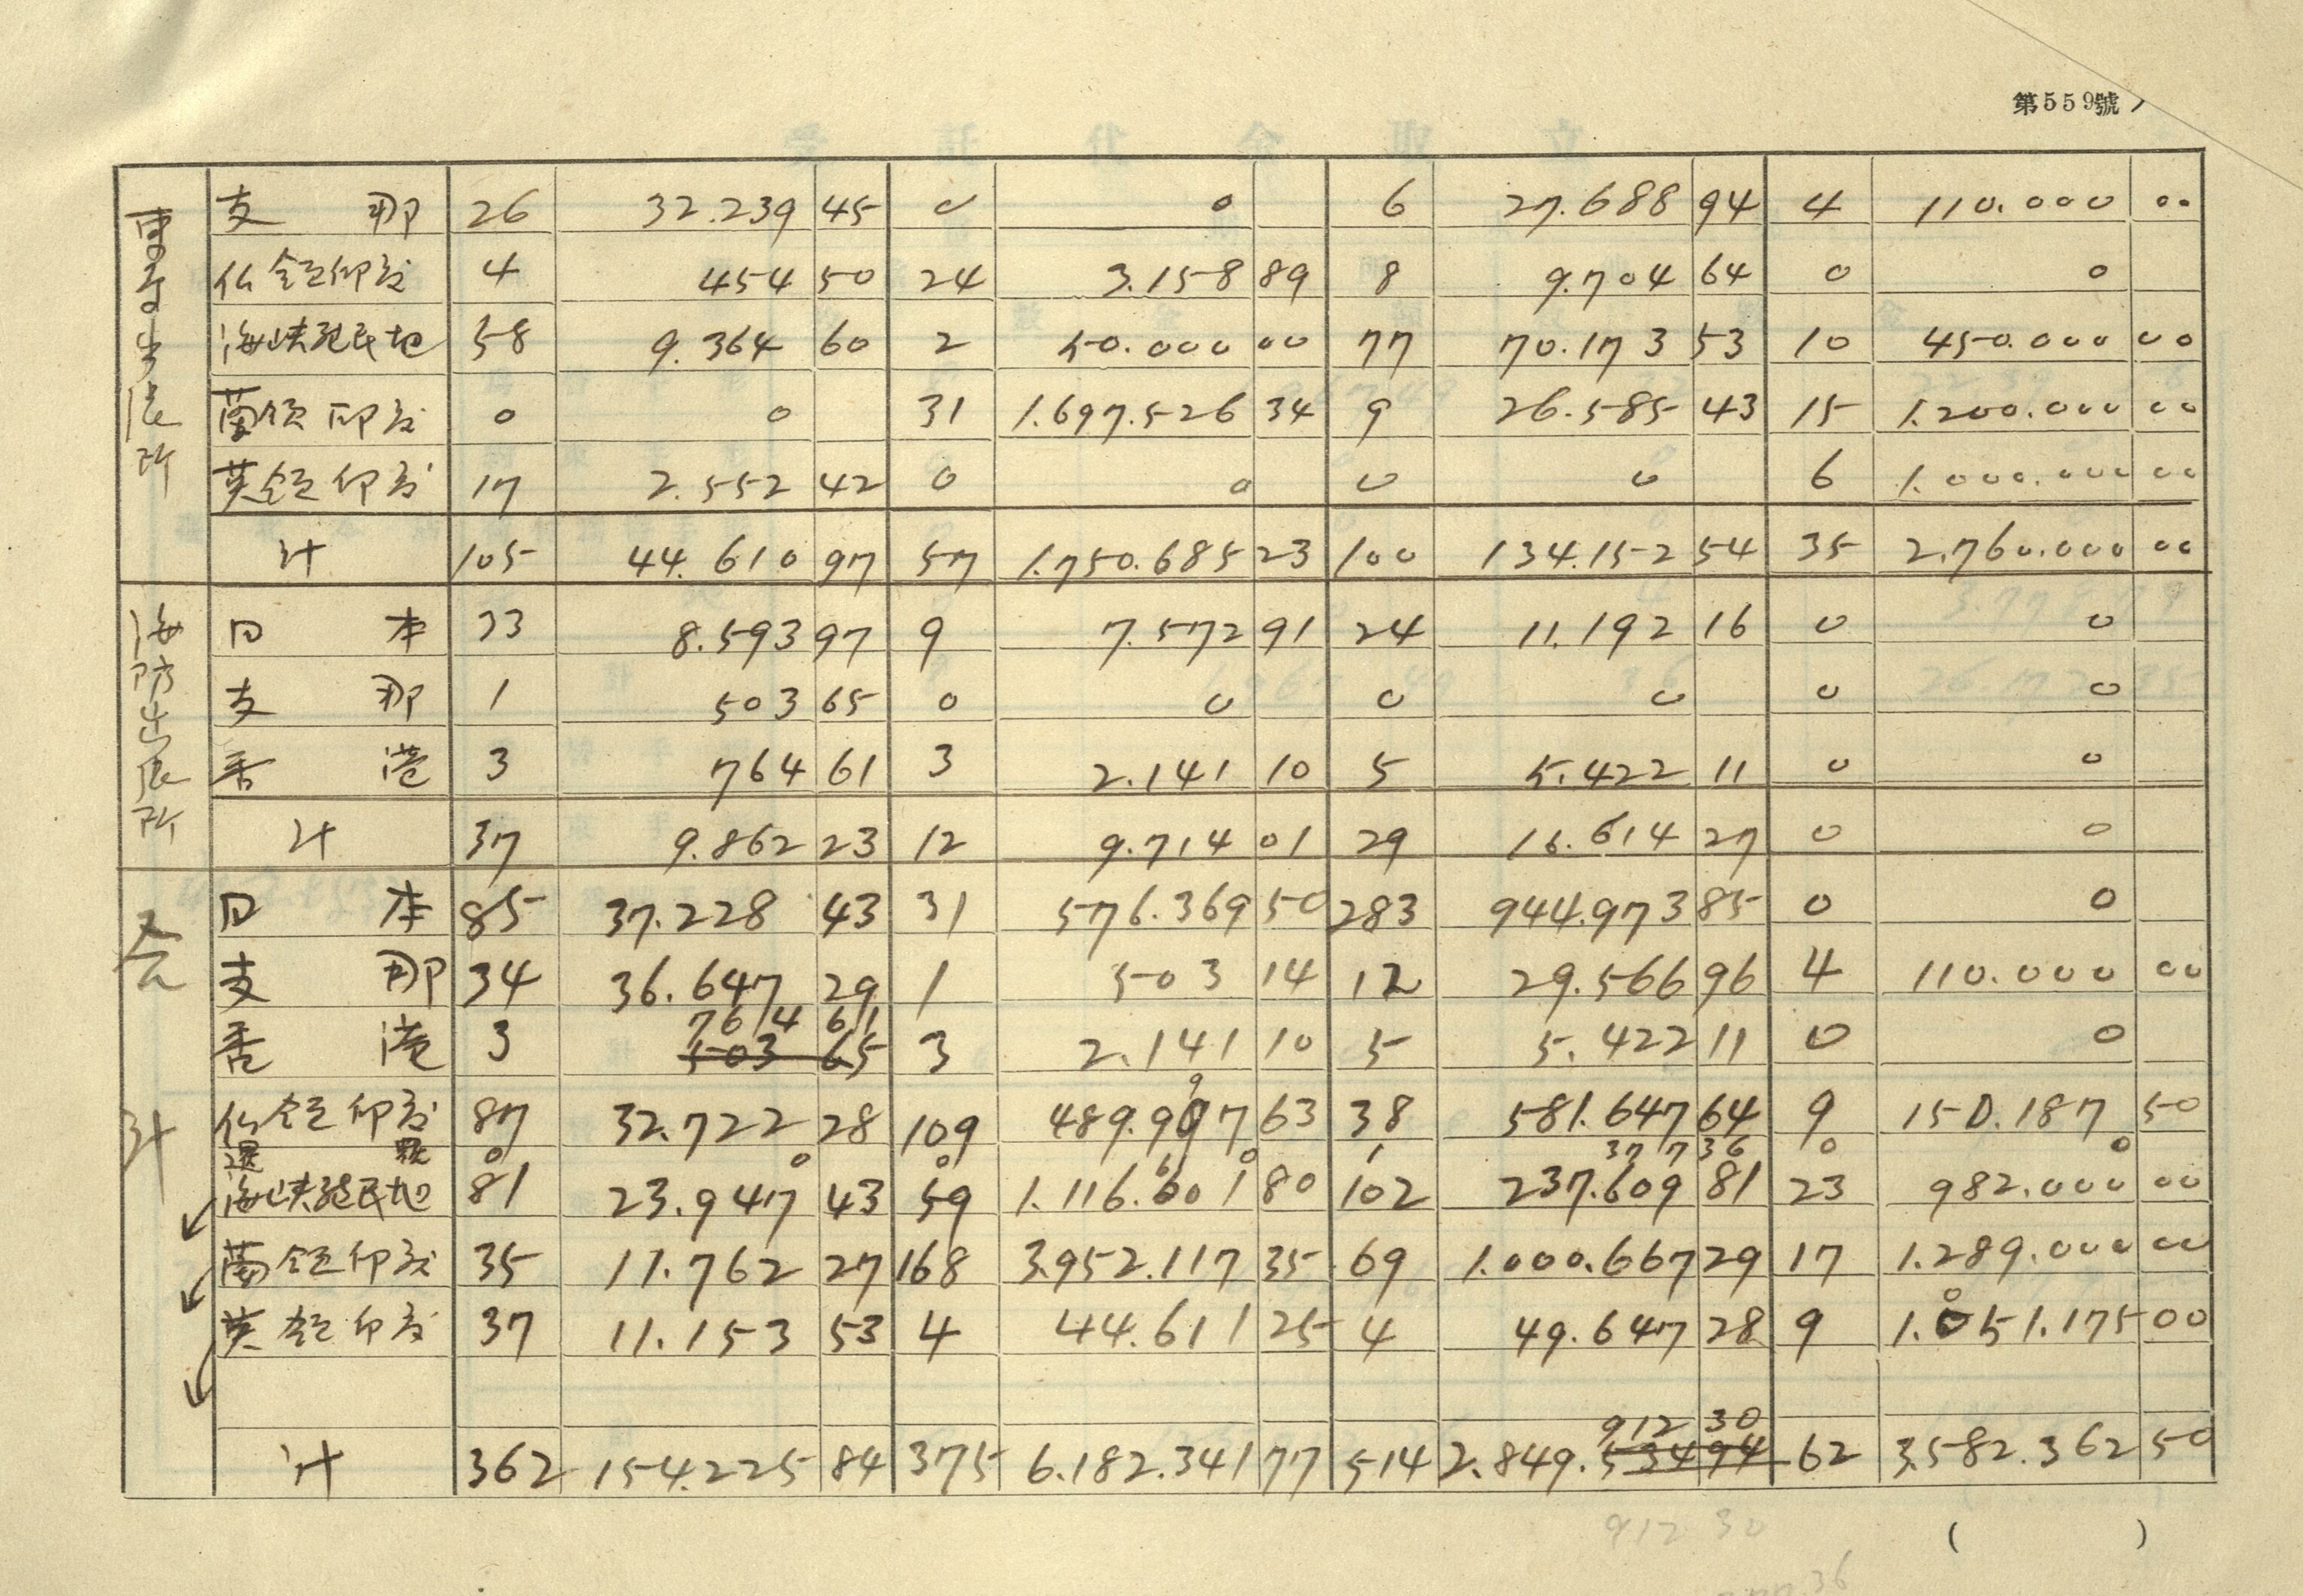 第559號
高雄出張所
支那 26 32.239 45 0 0 6 27.688 94 4 110.000 00
仏領印度 4 454 50 24 3.158 89 8 9.704 64 0 0
海峡殖民地 58 9.364 60 2 50.000 00 77 70.173 53 10 450.000 00
蘭領印度 0 0 31 1.697.526 34 9 26.585 43 15 1.200.000 00
英領印度 17 2.552 42 0 0 0 0 6 1.000.000 00
計 105 44.610 97 57 1.750.685 23 100 134.152 54 35 2.760.000 00
海防出張所
日本 33 8.593 97 9 7.572 91 24 11.192 16 0 0
支那 1 503 65 0 0 0 0 0 0
香港 3 764 61 3 2.141 10 5 5.422 11 0 0
計 37 9.862 23 12 9.714 01 29 16.614 27 0 0
合計
日本 85 37.228 43 31 576.369 50 283 944.973 85 0 0
支那 34 36.647 29 1 503 14 12 29.566 96 4 110.000 00
764 61
香港 3 503 65 3 2.141 10 5 5.422 11 0 0
9
仏領印度 87 32.722 28 109 489.997 63 38 581.647 64 9 150.187 50
暹羅 0 0 0 0 1 377 36 0 0
海峡殖民地 81 23.947 43 59 1.116.601 80 102 237.609 81 23 982.000 00
蘭領印度 35 11.762 27 168 3.952.117 35 69 1.000.667 29 17 1.289.000 00
0
英領印度 37 11.153 53 4 44.611 25 4 49.647 28 9 1.051.175 00
912 30
計 362 154.225 84 375 6.182.341 77 514 2.849.534 94 62 3.582.362 50
912 30
( )